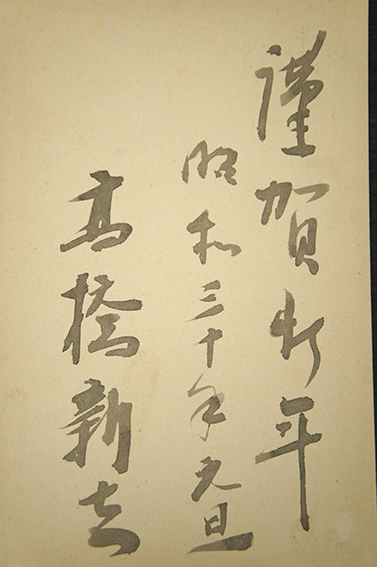 謹賀新年
昭和三十年元旦
高橋新吉